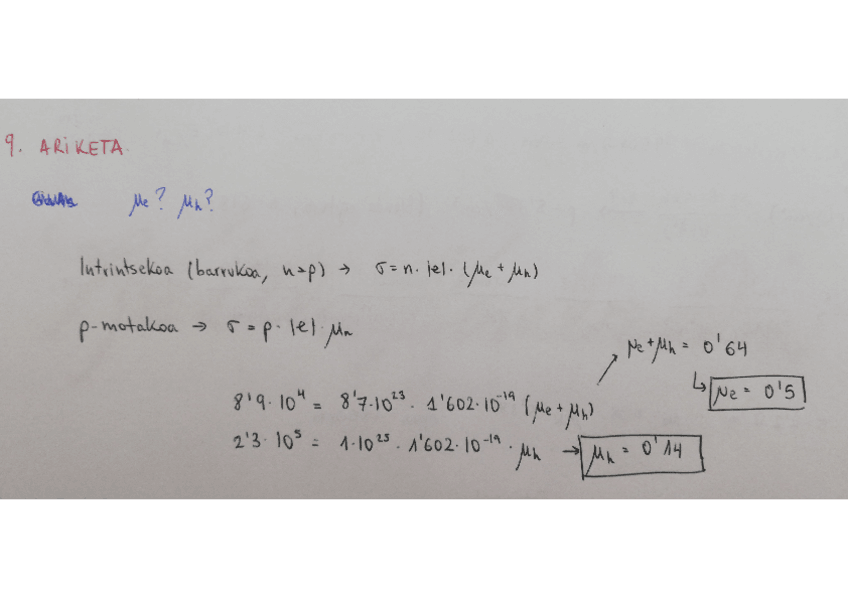 9. ARIKETA
μe? μh?
Intrintsekoa (barrukoa, n=p) → σ = n · |e| · (μe + μh)
p-motakoa → σ = p · |e| · μh
μe + μh = 0'64
↳ μe = 0'5
8'9 · 10⁴ = 8'7 · 10²³ · 1'602 · 10⁻¹⁹ (μe + μh)
2'3 · 10⁵ = 1 · 10²⁵ · 1'602 · 10⁻¹⁹ · μh → μh = 0'14